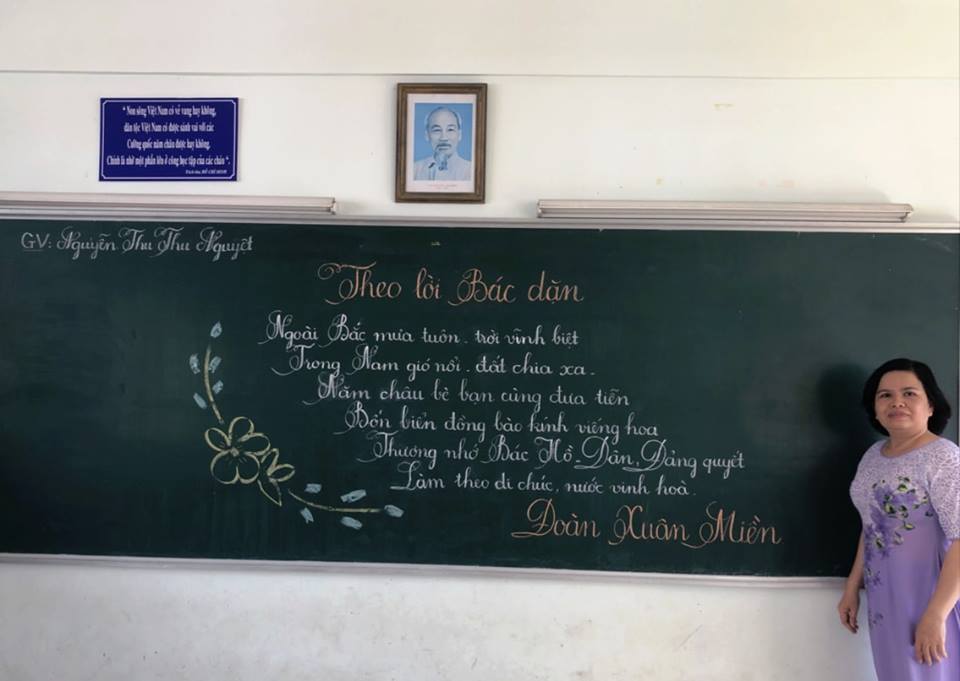 " Non sông Việt Nam có vẻ vang hay không,
dân tộc Việt Nam có được sánh vai với các
Cường quốc năm châu được hay không.
Chính là nhờ một phần lớn ở công học tập của các cháu ".
HỒ CHÍ MINH
GV: Nguyễn Thu Thu Nguyệt
Theo lời Bác dặn
Ngoài Bắc mưa tuôn. trời vĩnh biệt
Trong Nam gió nổi. đất chia xa.
Năm châu bè bạn cùng đưa tiễn
Bốn biển đồng bào kính viếng hoa
Thương nhớ Bác Hồ. Dân, Đảng quyết
Làm theo di chúc, nước vinh hoà.
Đoàn Xuân Miền